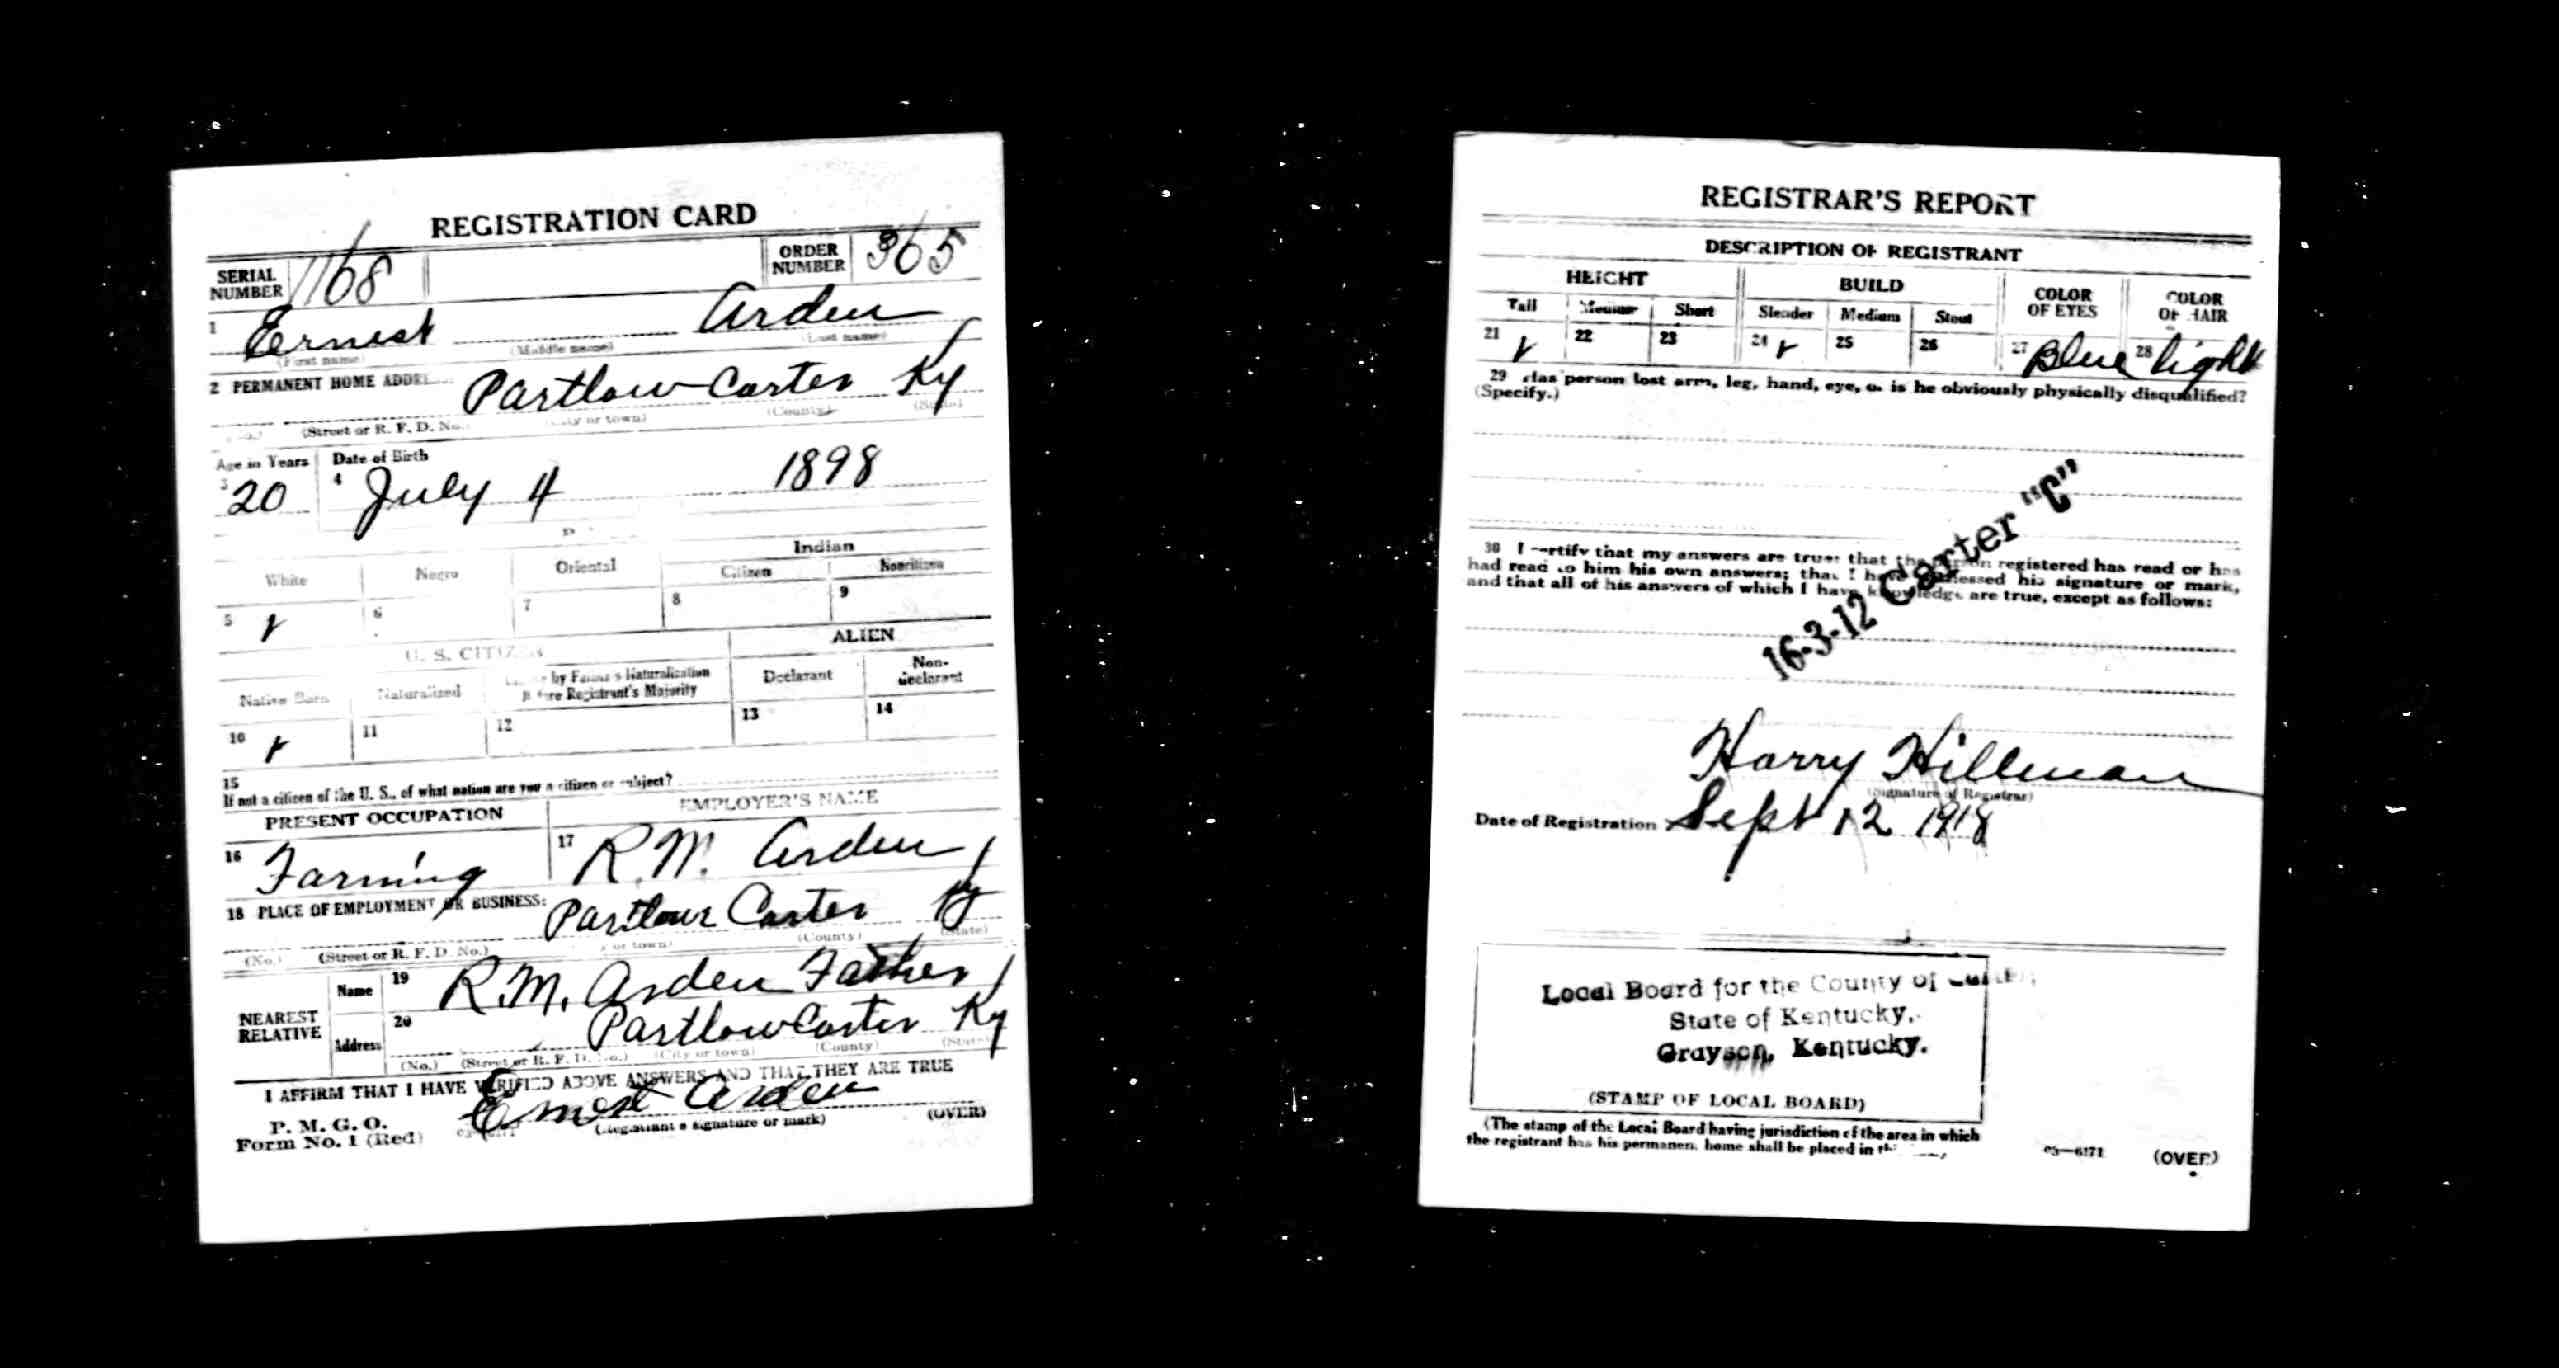 REGISTRATION CARD
SERIAL NUMBER 1168 ORDER NUMBER 365
1 Ernest Arden
(First name) (Middle name) (Last name)
2 PERMANENT HOME Partlow Carter Ky
(Street or R. F. D. No.) or town) (County) (State)
Age in Years Date of Birth
3 20 4 July 4 1898
Indian
White Negro Oriental Citizen Noncitizen
5 6 7 8 9
U. S. ALIEN
Native Born Naturalized by Father's Naturalization Before Registrant's Majority Declarant Non-declarant
10 11 12 13 14
15
If not a citizen of the U. S., of what nation are you a citizen or subject?
PRESENT OCCUPATION EMPLOYER'S NAME
16 Farming 17 R.M. Arden
18 PLACE OF EMPLOYMENT OR BUSINESS: Partlow Carter Ky
(No.) (Street or R. F. D. No.) or town) (County) (State)
NEAREST RELATIVE
Name 19 R.M. Arden Father
Address 20 Partlow Carter Ky
(No.) (Street or R. F. D. No.) (City or town) (County) (State)
I AFFIRM THAT I HAVE VERIFIED ABOVE ANSWERS AND THAT THEY ARE TRUE
P. M. G. O.
Form No. 1 (Red) Ernest Arden
(Registrant's signature or mark) (OVER)
REGISTRAR'S REPORT
DESCRIPTION OF REGISTRANT
HEIGHT BUILD COLOR OF EYES COLOR OF HAIR
Tall Medium Short Slender Medium Stout
21 22 23 24 25 26 27 Blue 28 light
29 Has person lost arm, leg, hand, eye, or is he obviously physically disqualified?
(Specify.)
30 I certify that my answers are true; that the person registered has read or has
had read to him his own answers; that I have witnessed his signature or mark,
and that all of his answers of which I have knowledge are true, except as follows:
16-3-12 Carter "C"
Harry Hillman
(Signature of Registrar)
Date of Registration Sept 12 1918
Local Board for the County of Carter,
State of Kentucky,
Grayson, Kentucky.
(STAMP OF LOCAL BOARD)
(The stamp of the Local Board having jurisdiction of the area in which
the registrant has his permanent home shall be placed in
03—6171 (OVER)